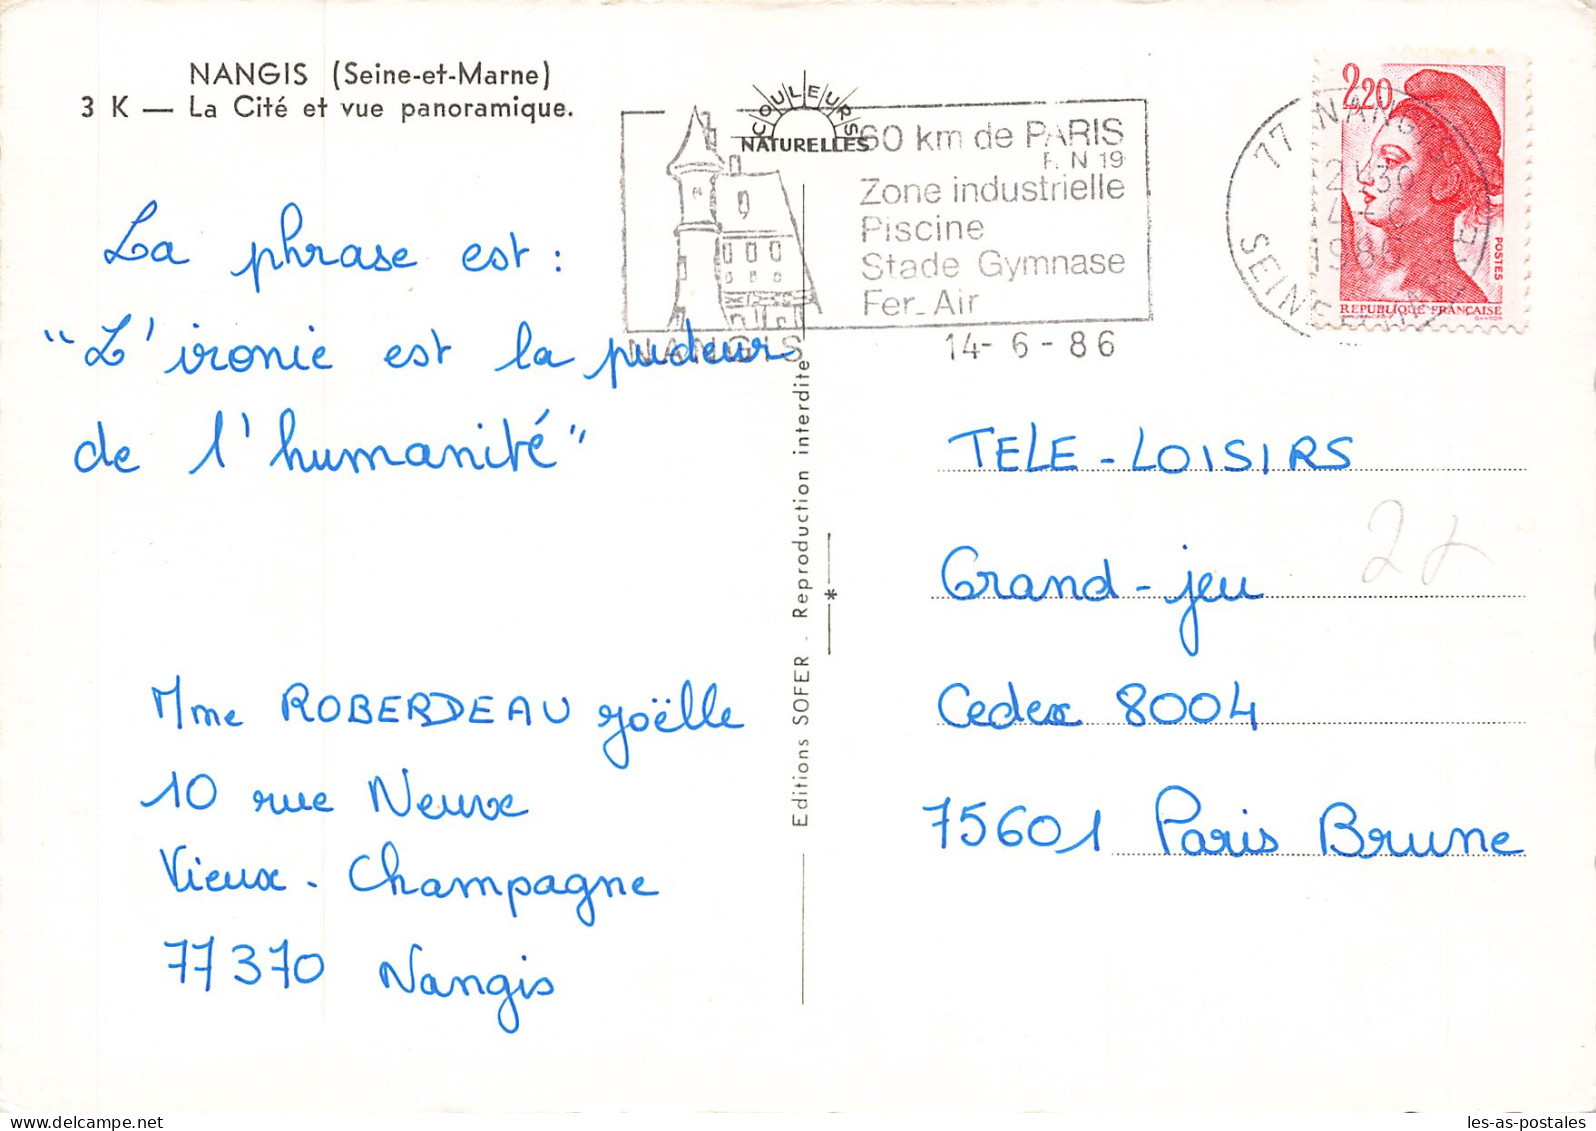 NANGIS (Seine-et-Marne)
3 K — La Cité et vue panoramique.
COULEURS
NATURELLES
60 km de PARIS
R. N 19
Zone industrielle
Piscine
Stade Gymnase
Fer_Air
NANGIS
14-6-86
77 NANGIS
1986
SEINE-ET-MARNE
2,20
POSTES
REPUBLIQUE FRANÇAISE
La phrase est :
"L'ironie est la pudeur
de l'humanité"
Mme ROBERDEAU Joëlle
10 rue Neuve
Vieux-Champagne
77370 Nangis
Editions SOFER - Reproduction interdite
*
TELE-LOISIRS
Grand-jeu
Cedex 8004
75601 Paris Brune
les-as-postales